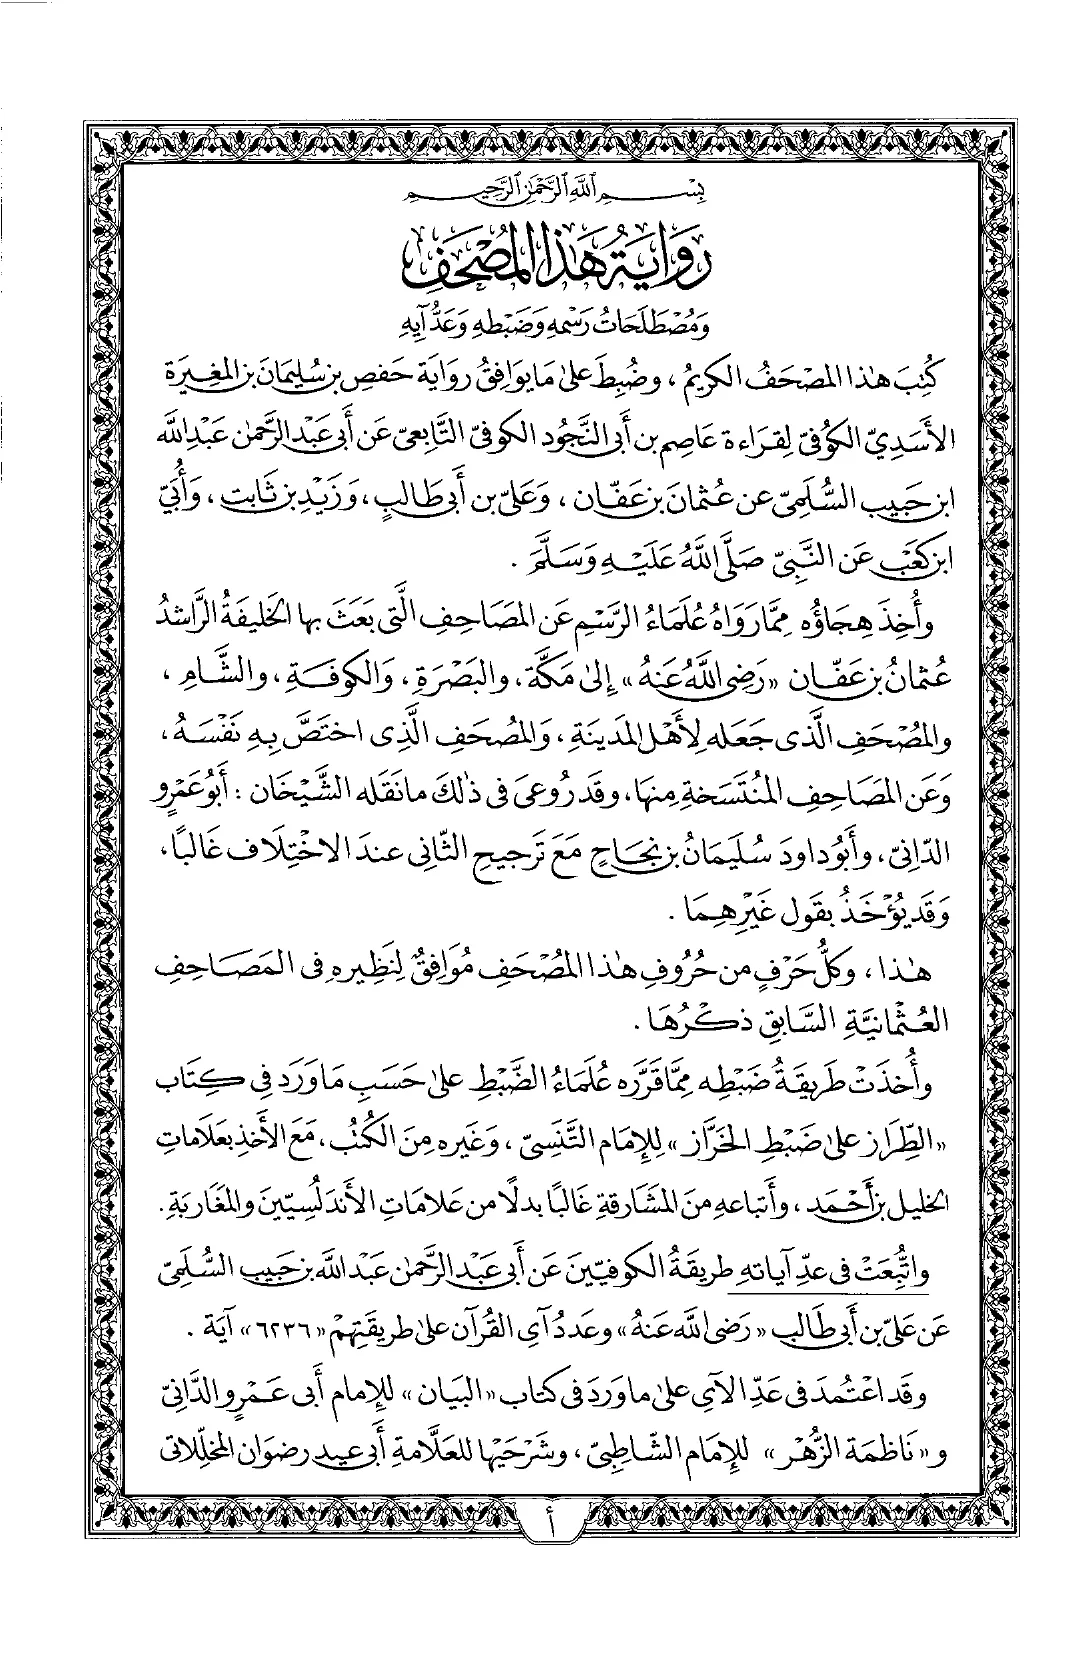 بِسْمِ اللَّهِ الرَّحْمَٰنِ الرَّحِيمِ
رِوَايَةُ هَٰذَا الْمُصْحَفِ
وَمُصْطَلَحَاتُ رَسْمِهِ وَضَبْطِهِ وَعَدِّ آيِهِ
كُتِبَ هٰذا المصْحَفُ الكريمُ ، وضُبِطَ عَلىٰ مَا يوَافِقُ روَايَةَ حَفصِ بنِ سُليمَانَ بنِ المغيرَة
الأسَدِيّ الكُوفيّ لِقرَاءة عَاصِم بن أبي النَّجُود الكوفيّ التَّابعيّ عَن أبي عَبْد الرَّحمٰن عَبْد الله
ابن حَبيب السُّلَميّ عن عُثمَانَ بن عَفّان ، وَعَليّ بن أبي طَالبٍ ، وَزَيْدِ بن ثَابت ، وَأُبَيّ
ابن كَعْب عَن النَّبِيّ صَلَّى اللَّهُ عَلَيْهِ وَسَلَّمَ .
وأُخِذَ هِجَاؤُه مِمَّا رَوَاهُ عُلمَاءُ الرَّسْمِ عَن المَصَاحِفِ الَّتي بَعَثَ بها الخَليفَةُ الرَّاشدُ
عُثمَانُ بنُ عَفّان «رَضِيَ اللَّهُ عَنهُ» إلىٰ مَكَّةَ ، والبَصْرَةِ ، وَالكوفَةِ ، والشَّامِ ،
والمُصْحَفِ الَّذي جَعَله لِأهْلِ المَدينَةِ ، وَالمُصحَفِ الَّذِي اختَصَّ بِهِ نَفْسَهُ ،
وَعَن المَصَاحِفِ المُنتَسَخةِ مِنهَا ، وقَد رُوعيَ في ذٰلكَ مَا نَقَله الشَّيْخَان : أبُو عَمْرٍو
الدّانيّ ، وأبُو داودَ سُليَمَانُ بنُ نجَاحٍ مَعَ تَرجيحِ الثَّاني عندَ الاختِلَاف غَالبًا ،
وَقَد يُؤْخَذُ بقَول غَيْرِهِمَا .
هٰذا ، وكُلُّ حَرْفٍ من حُرُوفِ هٰذا المُصْحَفِ مُوَافِقٌ لِنَظِيرِه في المصَاحِفِ
العُثْمَانيَّةِ السَّابقِ ذكْرُهَا .
وأُخذَتْ طَريقَةُ ضَبْطِه مِمَّا قَرَّرَه عُلمَاءُ الضَّبْطِ عَلىٰ حَسَبِ مَا وَرَدَ في كِتَاب
«الطِّرَاز عَلىٰ ضَبْطِ الخَرَّاز» لِلإمَام التَّنَسيّ ، وَغَيره مِنَ الكُتُب ، مَعَ الأخْذِ بعَلَامَاتِ
الخَليل بن أحْمَد ، وأتباعهِ منَ المشَارقةِ غَالبًا بدلًا من عَلامَاتِ الأندَلُسِيّينَ والمغَاربَةِ .
واتُّبعَتْ في عدّ آياته طريقَةُ الكوفيّينَ عَن أبي عَبْد الرَّحمٰن عَبْد الله بن حَبيب السُّلَميّ
عَن عَليّ بن أبي طَالب «رَضِيَ اللَّه عَنهُ» وعَددُ آي القُرآن عَلىٰ طريقَتِهِمْ «٦٢٣٦» آيَة .
وقَد اعْتُمدَ في عَدِّ الآي عَلىٰ ما وَرَدَ في كتاب «البَيان» للإمَام أبي عَمْرٍو الدَّانيّ
و«نَاظمَة الزُّهْر» للإمَام الشَّاطِبيّ ، وشَرْحَيْها للعَلَّامةِ أبي عيد رضوَان المخلّلاتي
أ